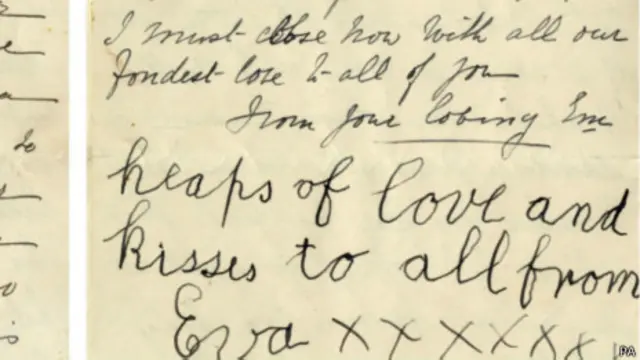 I must close now with all our
fondest love to all of you
from your loving Em
heaps of love and
kisses to all from
Eva x x x x x x
PA